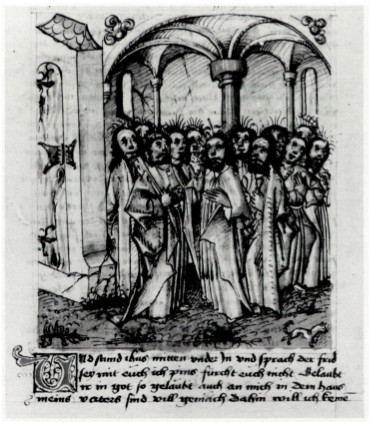 Und stund ihus mitten vnder In vnd sprach der frid
sey mit euch ich pins furcht euch nicht Gelaubt
ir in got so gelaubt auch an mich in dem haus
meins vaters sind vill gemach dahin will ich keme